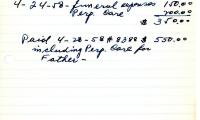 4-24-58-funeral expenses 150.00
Perp. Care 200.00
$ 350.00
Paid 4-28-58 # 8388 $ 550.00
including Perp. Care for
Father-